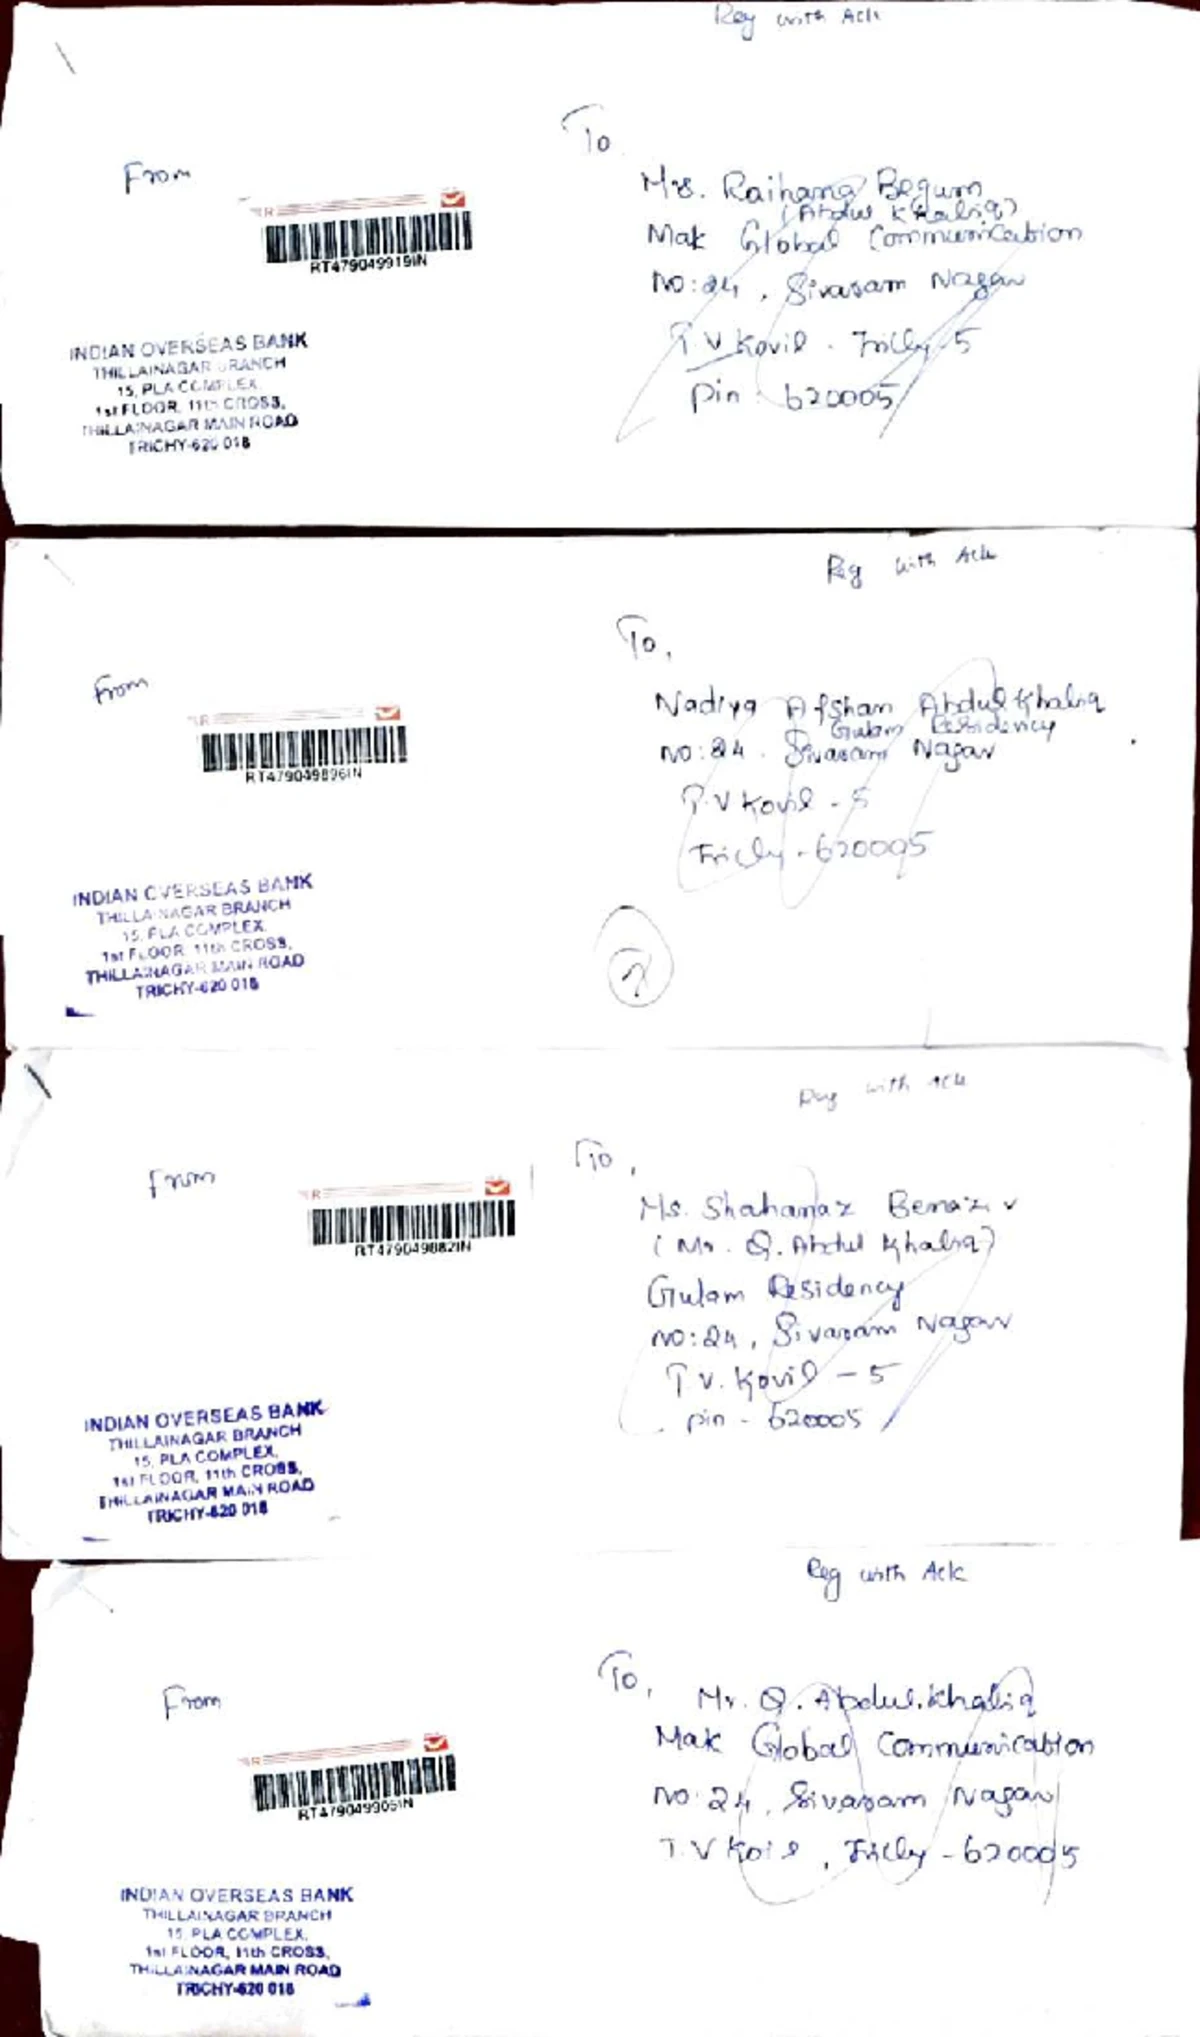 Reg with Ack
To
From
Mrs. Raihana Begum
(Abdul Khaliq)
Mak Global Communication
No:24, Sivaram Nagar
T V Kovil - Trichy-5
Pin: 620005
R
RT479049919IN
INDIAN OVERSEAS BANK
THILLAINAGAR BRANCH
15, PLA COMPLEX,
1st FLOOR, 11th CROSS,
THILLAINAGAR MAIN ROAD
TRICHY-620 018
Reg with Ack
To,
From
Nadiya Afshan Abdul Khaliq
Gulam Residency
No:24. Sivaram Nagar
T.V Kovil - 5
Trichy - 620005
R
RT479049896IN
INDIAN OVERSEAS BANK
THILLAINAGAR BRANCH
15, PLA COMPLEX,
1st FLOOR, 11th CROSS,
THILLAINAGAR MAIN ROAD
TRICHY-620 018
Reg with Ack
To,
From
Ms. Shahanaz Benazir
(Mr. Q. Abdul Khaliq)
Gulam Residency
No:24, Sivaram Nagar
T.V. Kovil - 5
Pin - 620005
R
RT479049882IN
INDIAN OVERSEAS BANK
THILLAINAGAR BRANCH
15, PLA COMPLEX,
1st FLOOR, 11th CROSS,
THILLAINAGAR MAIN ROAD
TRICHY-620 018
Reg with Ack
To,
From
Mr. Q. Abdul.Khaliq
Mak Global Communication
No 24, Sivaram Nagar
T.V Koil, Trichy - 620005
R
RT479049905IN
INDIAN OVERSEAS BANK
THILLAINAGAR BRANCH
15, PLA COMPLEX,
1st FLOOR, 11th CROSS,
THILLAINAGAR MAIN ROAD
TRICHY-620 018